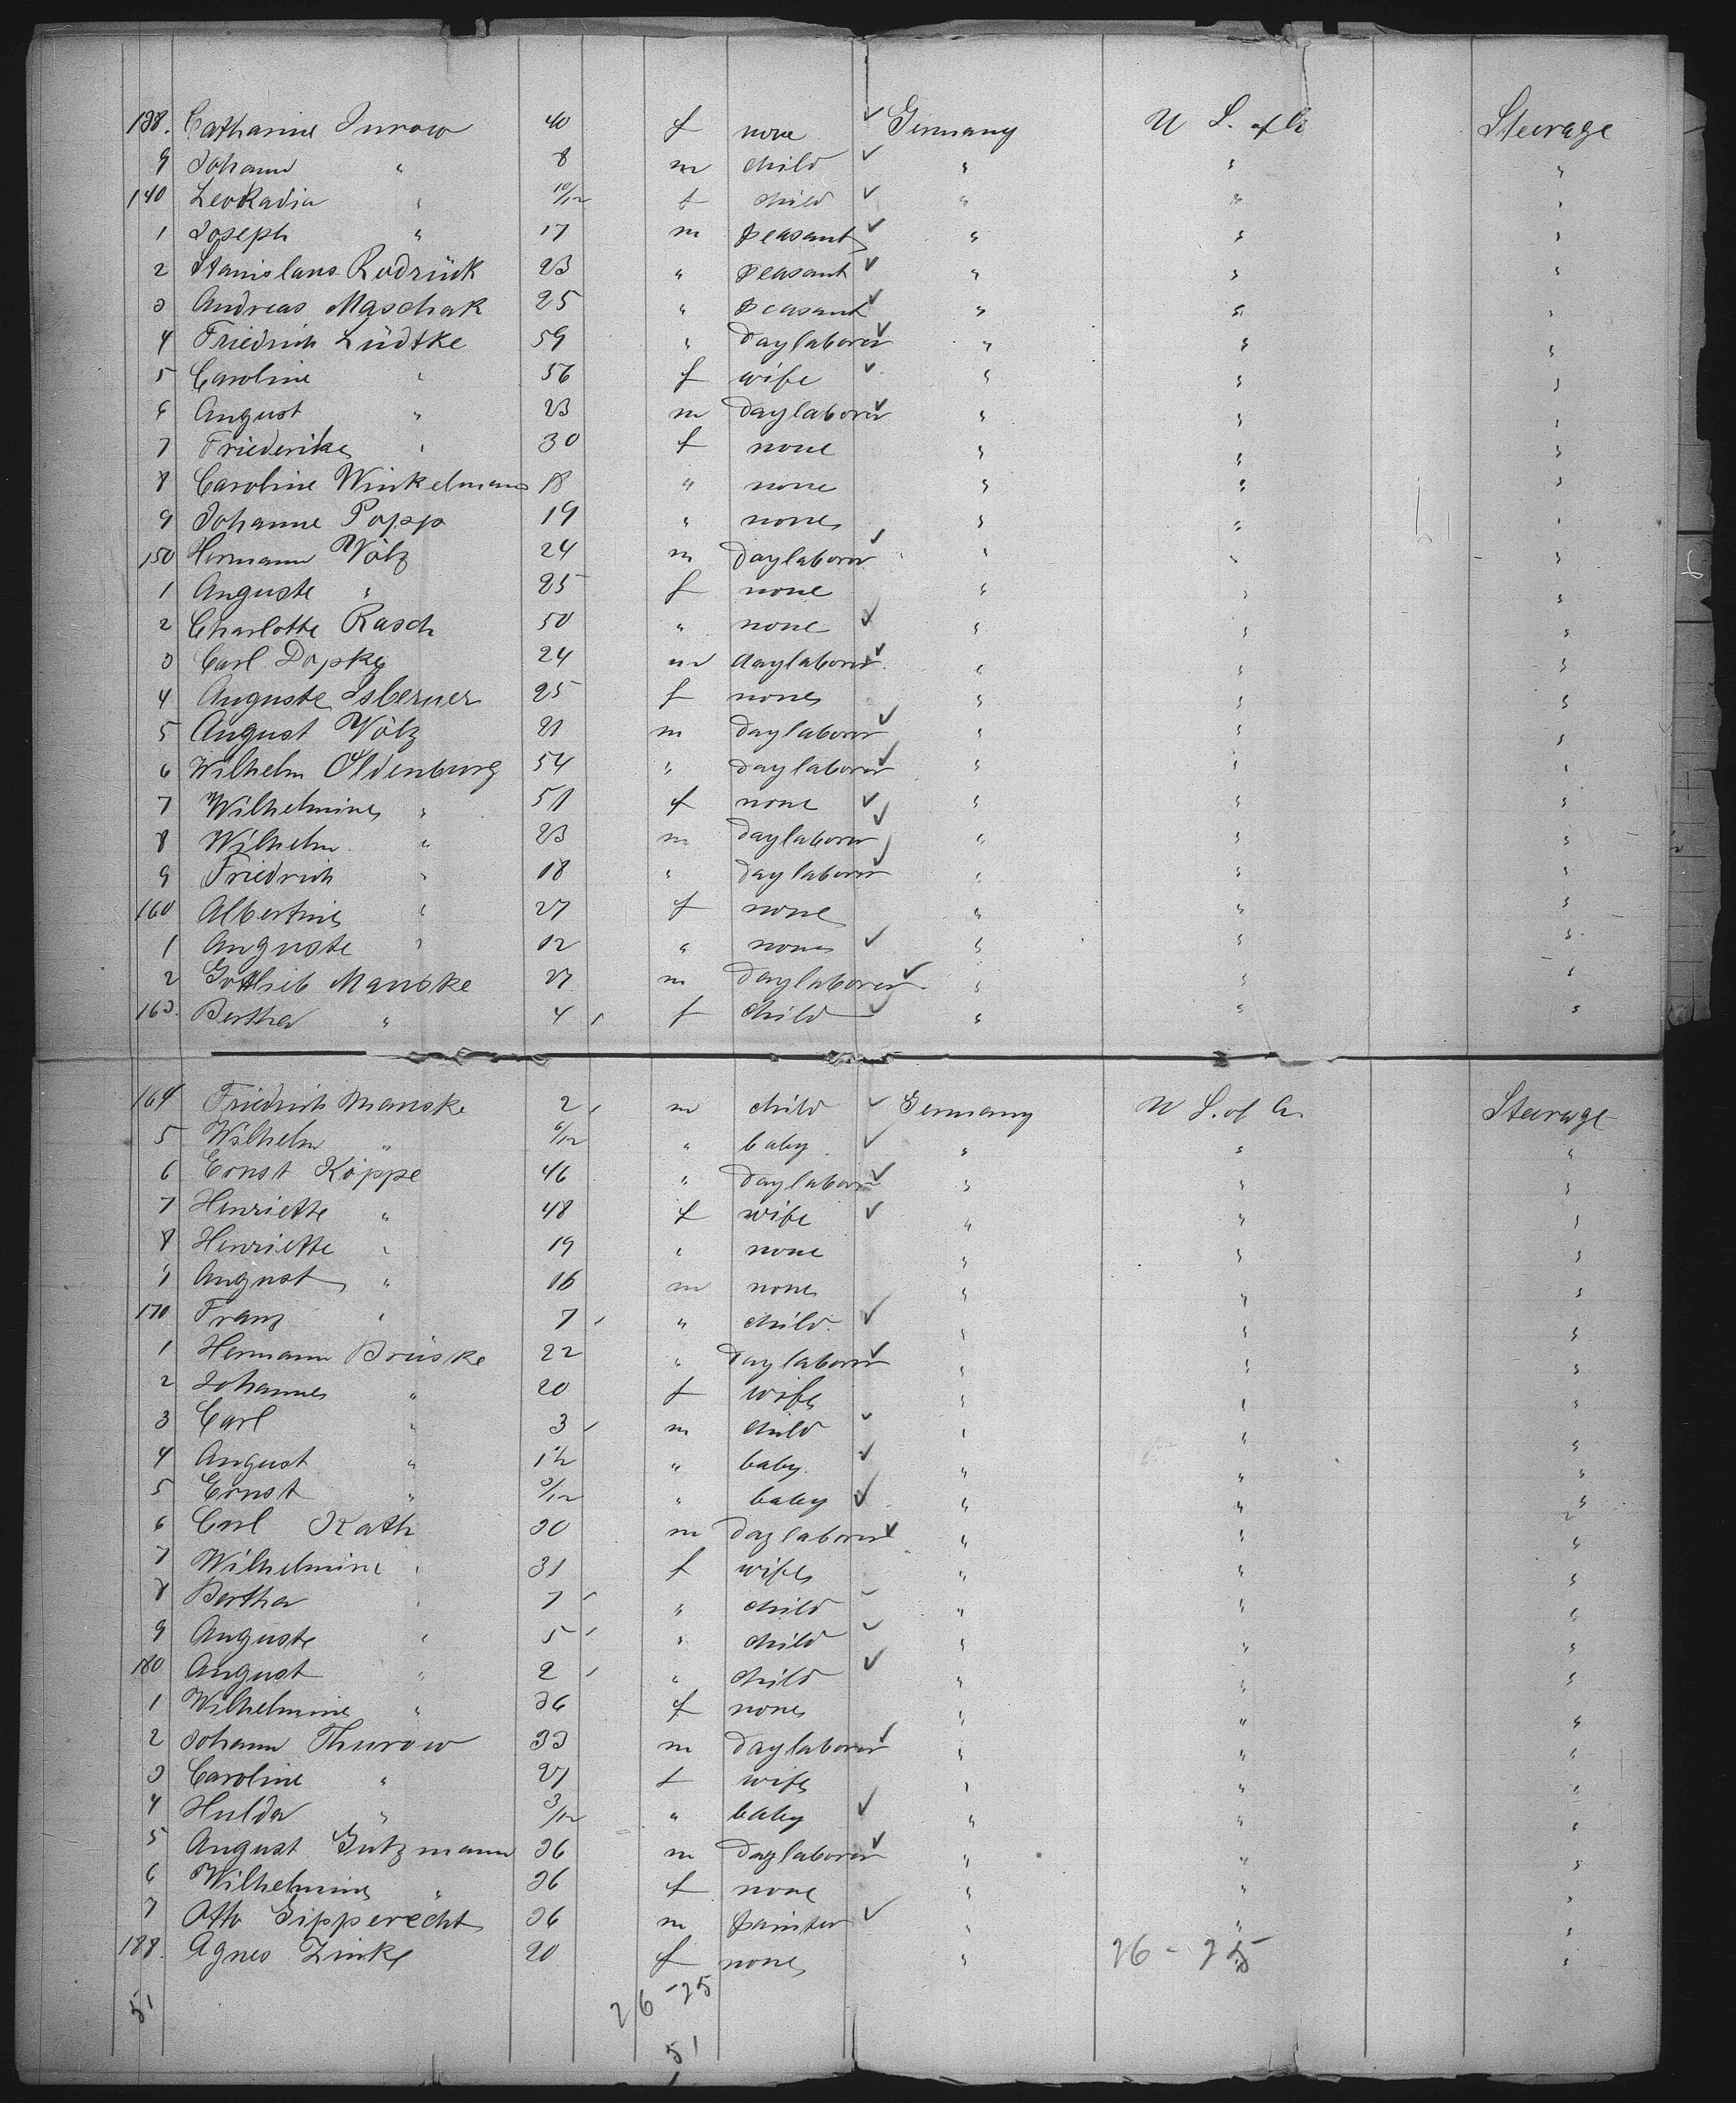 138. Catharine Jurow 40 f none ✓ Germany U S. of A Steerage
9 Johann " 8 m child ✓ " " "
140 Leokadia " 10/12 f child ✓ " " "
1 Joseph " 17 m peasant ✓ " " "
2 Stanislaus Rudrück 23 " peasant ✓ " " "
3 Andreas Maschak 25 " peasant ✓ " " "
4 Friedrich Lüdtke 59 " daylaborer ✓ " " "
5 Caroline " 56 f wife ✓ " " "
6 August " 23 m daylaborer ✓ " " "
7 Friederike " 30 f none " " "
8 Caroline Winkelmann 18 " none " " "
9 Johanne Popp 19 " none " " "
150 Hermann Völz 24 m daylaborer ✓ " " "
1 Auguste " 25 f none " " "
2 Charlotte Rasch 50 " none ✓ " " "
3 Carl Dopke 24 m daylaborer ✓ " " "
4 Auguste Isberner 25 f none " " "
5 August Völz 21 m daylaborer ✓ " " "
6 Wilhelm Oldenburg 54 " daylaborer ✓ " " "
7 Wilhelmine " 51 f none ✓ " " "
8 Wilhelm " 23 m daylaborer ✓ " " "
9 Friedrich " 18 " daylaborer ✓ " " "
160 Albertine " 27 f none " " "
1 Auguste " 12 " none ✓ " " "
2 Gottlieb Manske 27 m daylaborer ✓ " " "
163. Bertha " 4 f child ✓ " " "
164 Friedrich Manske 2 m child ✓ Germany U S. of A. Steerage
5 Wilhelm " 6/12 " baby ✓ " " "
6 Ernst Köppe 46 " daylaborer ✓ " " "
7 Henriette " 48 f wife ✓ " " "
8 Henriette " 19 " none " " "
9 August " 16 m none " " "
170 Franz " 7 " child ✓ " " "
1 Hermann Brüske 22 " daylaborer ✓ " " "
2 Johanne " 20 f wife " " "
3 Carl " 3 m child ✓ " " "
4 August " 1½ " baby ✓ " " "
5 Ernst " 3/12 " baby ✓ " " "
6 Carl Kath 30 m daylaborer ✓ " " "
7 Wilhelmine " 31 f wife " " "
8 Bertha " 7 " child ✓ " " "
9 Auguste " 5 " child ✓ " " "
180 August " 2 " child ✓ " " "
1 Wilhelmine " 26 f none " " "
2 Johann Thurow 33 m daylaborer ✓ " " "
3 Caroline " 27 f wife " " "
4 Hulda " 3/12 " baby ✓ " " "
5 August Gutzmann 26 m daylaborer ✓ " " "
6 Wilhelmine " 26 f none " " "
7 Otto Gipperecht 26 m painter ✓ " " "
188. Agnes Zinke 20 f none " "
26 - 25
51 26 - 25
51